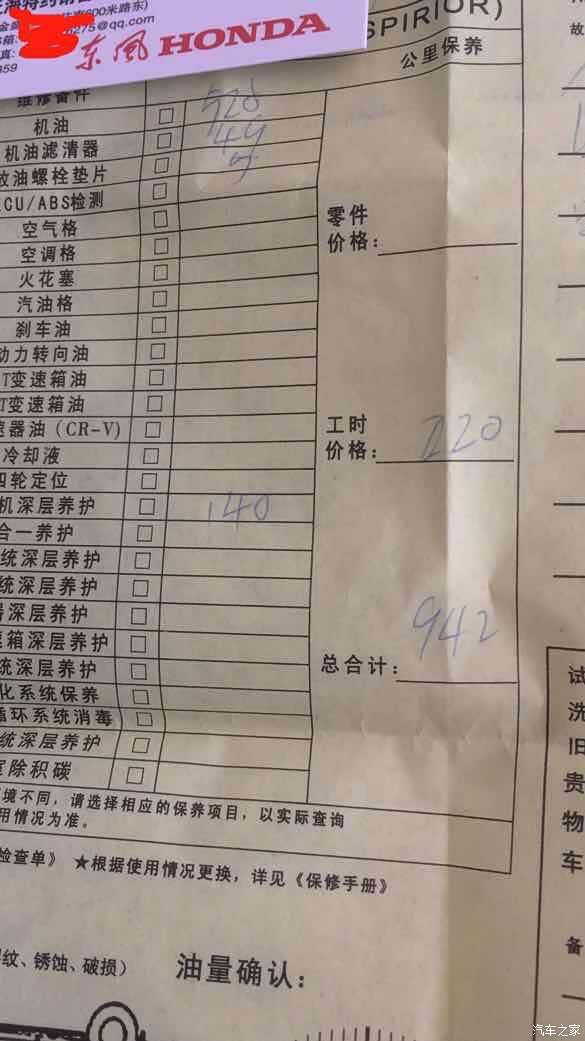 600米路东)
275@qq.com
859
东风 HONDA
SPIRIOR)
公里保养
故
维修备件
机油 □ 528
机油滤清器 □ 49
放油螺栓垫片 □ 5
ECU/ABS检测 □
空气格 □
零件
价格:
空调格 □
火花塞 □
汽油格 □
刹车油 □
动力转向油 □
T变速箱油 □
T变速箱油 □
速器油(CR-V) □
工时
价格: 220
冷却液 □
四轮定位 □
机深层养护 □ 140
合一养护 □
统深层养护 □
统深层养护 □
深层养护 □
速箱深层养护 □
统深层养护 □
总合计: 942
化系统保养 □
循环系统消毒 □
统深层养护 □
室除积碳 □
境不同,请选择相应的保养项目,以实际查询
用情况为准。
检查单》 ★根据使用情况更换,详见《保修手册》
纹、锈蚀、破损)
油量确认:
试
洗
旧
贵
物
车
备
汽车之家